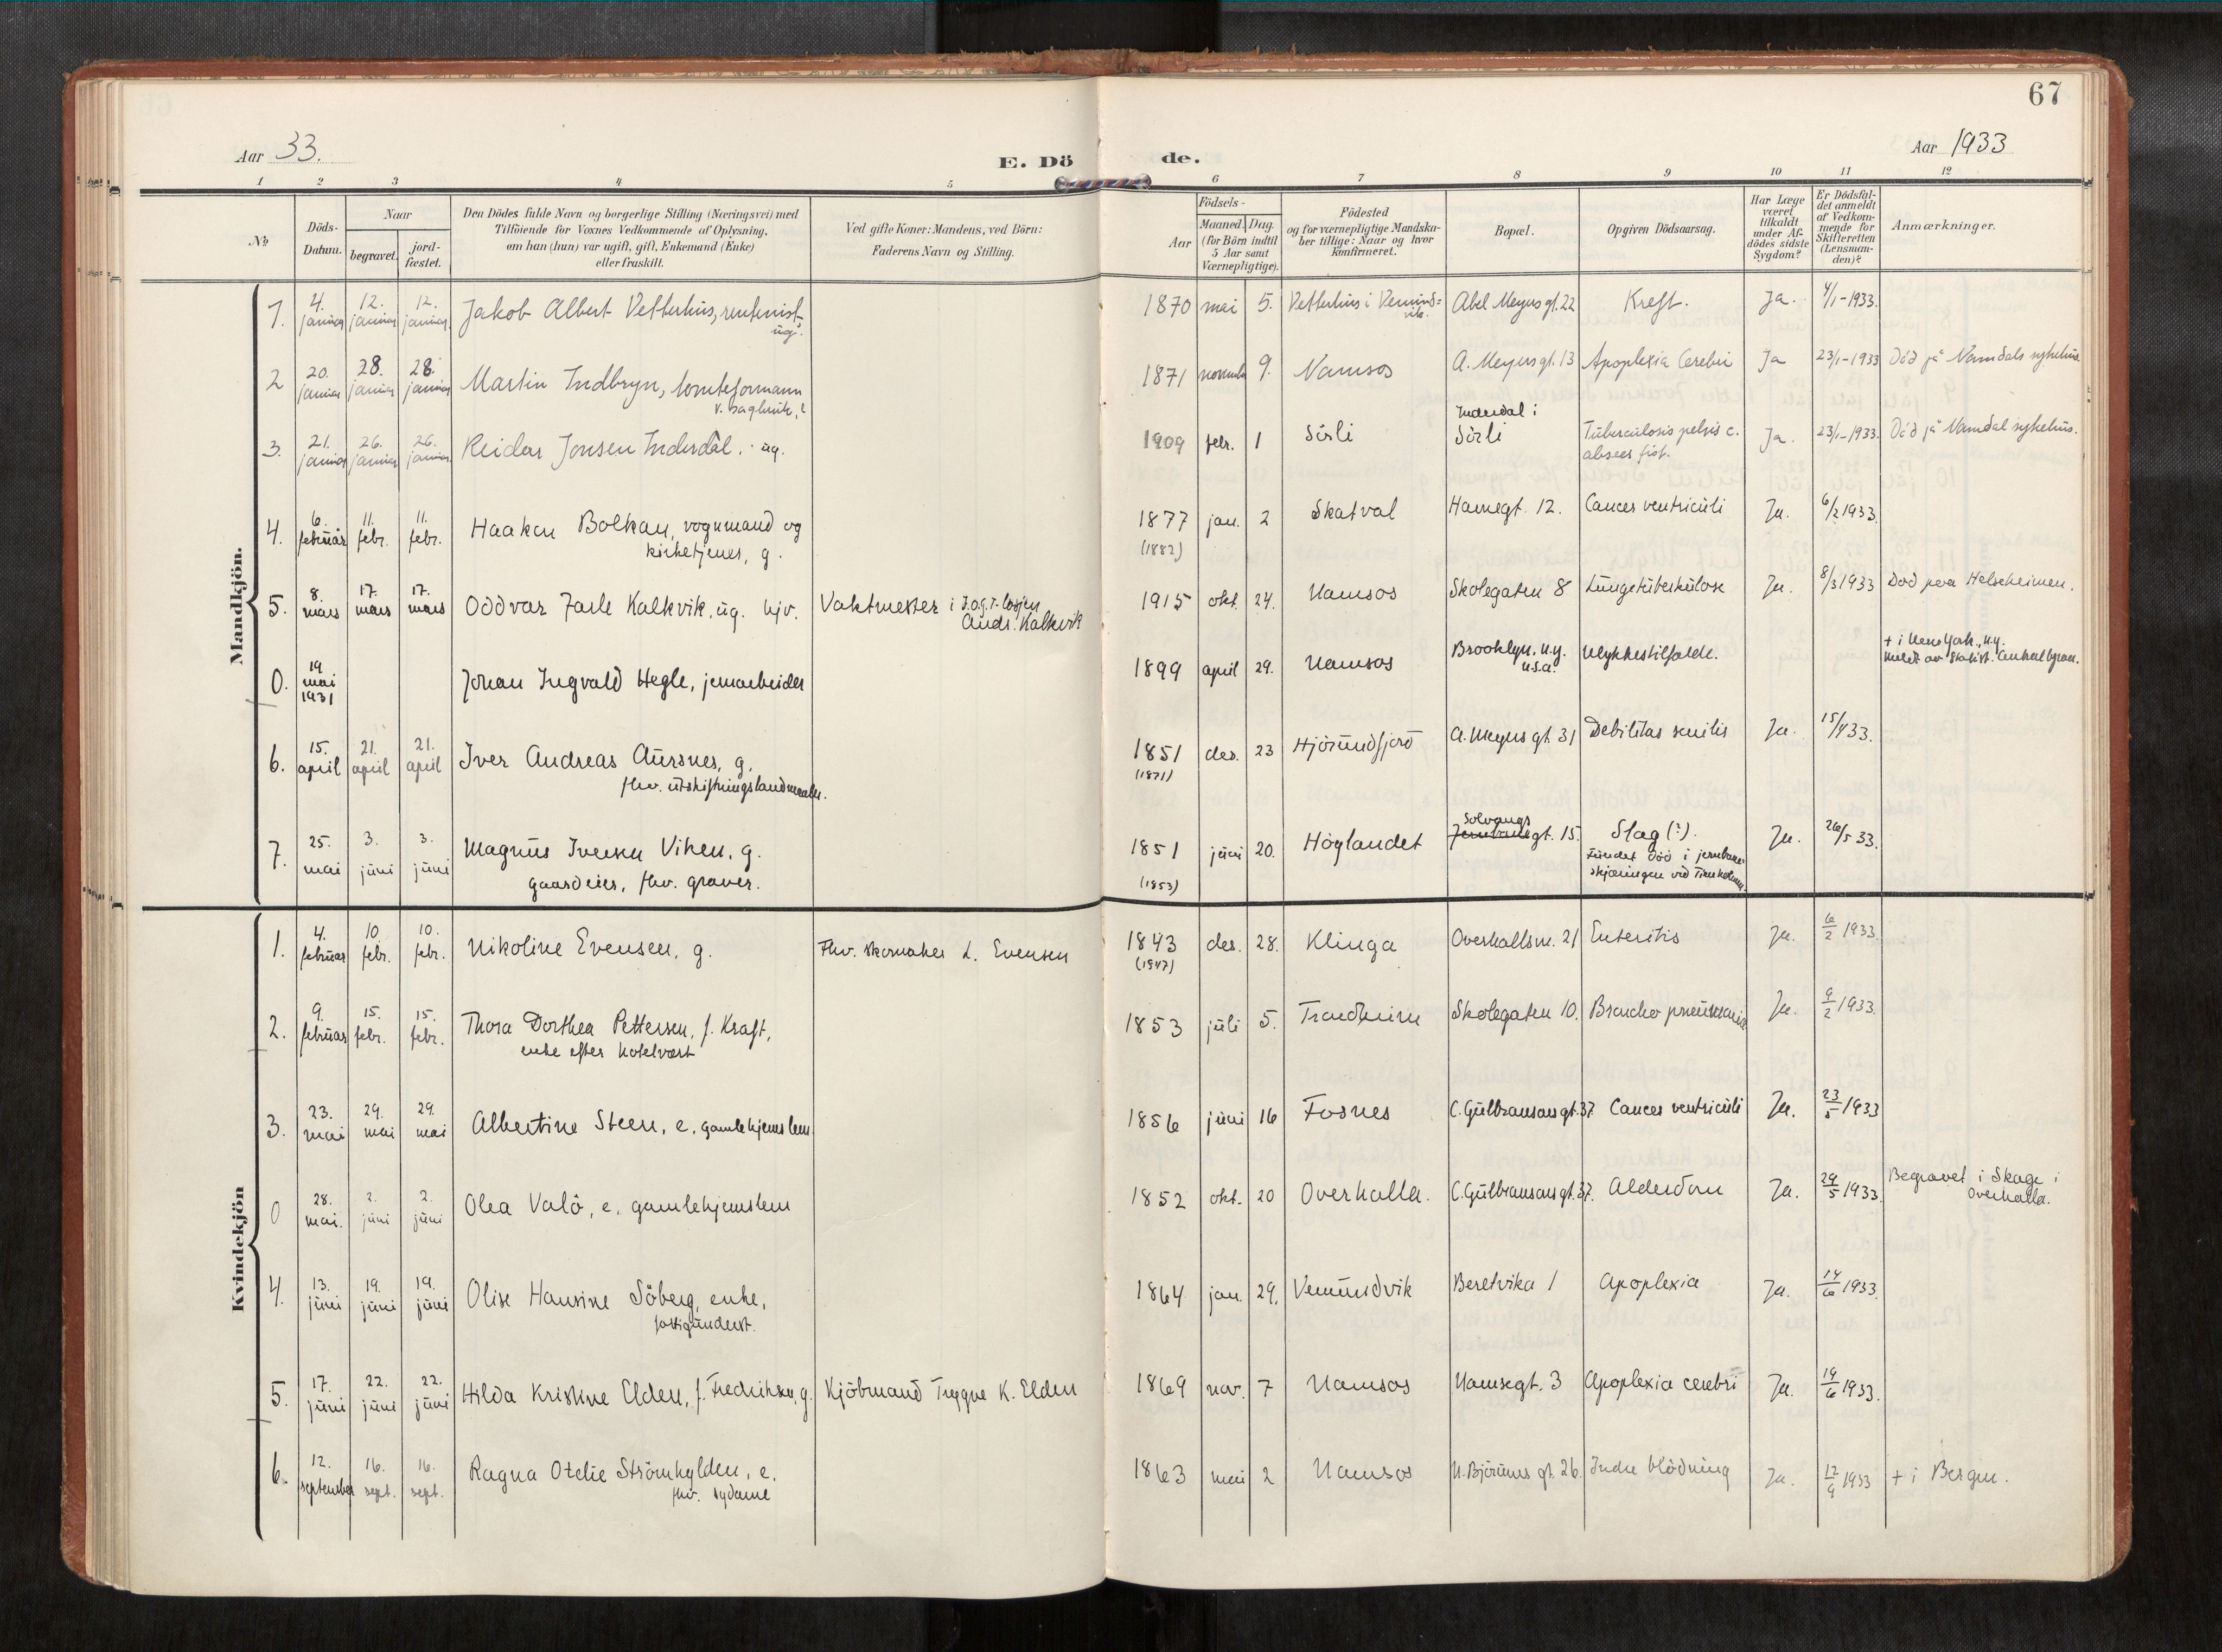 67
Aar 33.
E. Dö de.
Aar 1933
1 2 3 4 5 6 7 8 9 10 11 12
No
Döds-Datum.
Naar
begravet.
jord-fæstet.
Den Dödes fulde Navn og borgerlige Stilling (Næringsvei) med
Tilföiende for Voxnes Vedkommende af Oplysning,
om han (hun) var ugift, gift, Enkemand (Enke)
eller fraskilt.
Ved gifte Koner: Mandens, ved Börn:
Faderens Navn og Stilling.
Födsels-
Aar
Maaned. Dag.
(for Börn indtil
5 Aar samt
Værnepligtige).
Födested
og for værnepligtige Mandska-
ber tillige: Naar og hvor
konfirmeret.
Bopæl.
Opgiven Dödsaarsag.
Har Læge
været
tilkaldt
under Af-
dödes sidste
Sygdom?
Er Dödsfal-
det anmeldt
af Vedkom-
mende for
Skifteretten
(Lensman-
den)?
Anmærkninger.
Mandkjön.
1. 4. januar 12. januar 12. januar Jakob Albert Vetterhus, rentenist, ug. 1870 mai 5. Vetterhus i Vemundvik. Abel Meyers gt. 22 Kreft. Ja. 4/1-1933.
2 20. januar 28. januar 28. januar Martin Indbryn, tomteformann
v. sagbruk, 1871 november 9. Namsos A. Meyers gt. 13 Apoplexia Cerebri Ja 23/1-1933 Död på Namdals sykehus.
3. 21. januar 26. januar 26. januar Reidar Jonsen Inderdal. ug. 1909 febr. 1 Sörli Inderdal i
Sörli Tuberculosis pelvis c.
absces fist. Ja. 23/1-1933. Död på Namdal sykehus.
4. 6. februar 11. febr. 11. febr. Haakon Bolkan, vognmand og
kirketjener, g. 1877
(1882) jan. 2 Skatval Havnegt. 12. Cancer ventriculi Ja. 6/2 1933.
5. 8. mars 17. mars 17. mars Oddvar Jarle Kalkvik, ug. hjv. Vaktmester i I.O.G.T. losjen
Andr. Kalkvik 1915 okt. 24. Namsos Skolegaten 8 Lungetuberkulose Ja. 8/3 1933 Död paa Helseheimen.
0. 19 mai 1931 Johan Ingvald Hegle, jernarbeider 1899 april 29. Namsos Brooklyn, N.Y.
U.S.A. Ulykkestilfælde. + i New York, N.Y.
meldt av Statist. Centralbyraa.
6. 15. april 21. april 21. april Iver Andreas Aursnes, g.
fhv. utskiftningslandmaaler. 1851
(1871) des. 23 Hjörundfjord A. Meyers gt. 31 Debilitas senilis Ja. 15/4 33.
7. 25. mai 3. juni 3. juni Magnus Iversen Viken, g.
gaardeier, fhv. graver. 1851
(1853) juni 20. Höylandet Solvangs
Jernbanegt. 15. Slag (?).
Fundet död i jernbane-
skjæringen ved Tinnholmen. Ja. 26/5 33.
Kvindekjön
1. 4. februar 10. febr. 10. febr. Nikoline Evensen, g. Fhv. skomaker L. Evensen 1843
(1847) des. 28. Klinga Overhallsv. 21 Enteritis Ja. 6/2 1933.
2. 9. februar 15. febr. 15. febr. Thora Dorthea Pettersen, f. Kraft,
enke efter hotelvært 1853 juli 5. Trondheim Skolegaten 10. Broncho pneumonia Ja. 9/2 1933.
3. 23. mai 29. mai 29. mai Albertine Steen, e. gamlehjemslem. 1856 juni 16 Fosnes C. Gulbransons gt. 37 Cancer ventriculi Ja. 23/5 1933
0 28. mai. 2. juni 2. juni Olea Valö, e. gamlehjemslem 1852 okt. 20 Overhalla. C. Gulbransons gt. 37. Alderdom Ja. 29/5 1933. Begravet i Skage i
Overhalla.
4. 13. juni 19. juni 19. juni Olise Hansine Söberg, enke,
fattigunderst. 1864 jan. 29. Vemundvik Beretvika 1 Apoplexia Ja. 14/6 1933.
5. 17. juni 22. juni 22. juni Hilda Kristine Elden, f. Fredriksen, g. Kjöbmand Trygve K. Elden 1869 nov. 7 Namsos Namsegt. 3 Apoplexia cerebri Ja. 19/6 1933.
6. 12. september 16. sept. 16. sept. Ragna Otelie Strömhylden, e.
fhv. sydame 1863 mai 2 Namsos N. Björums gt. 26. Indre blödning Ja. 12/9 1933 + i Bergen.